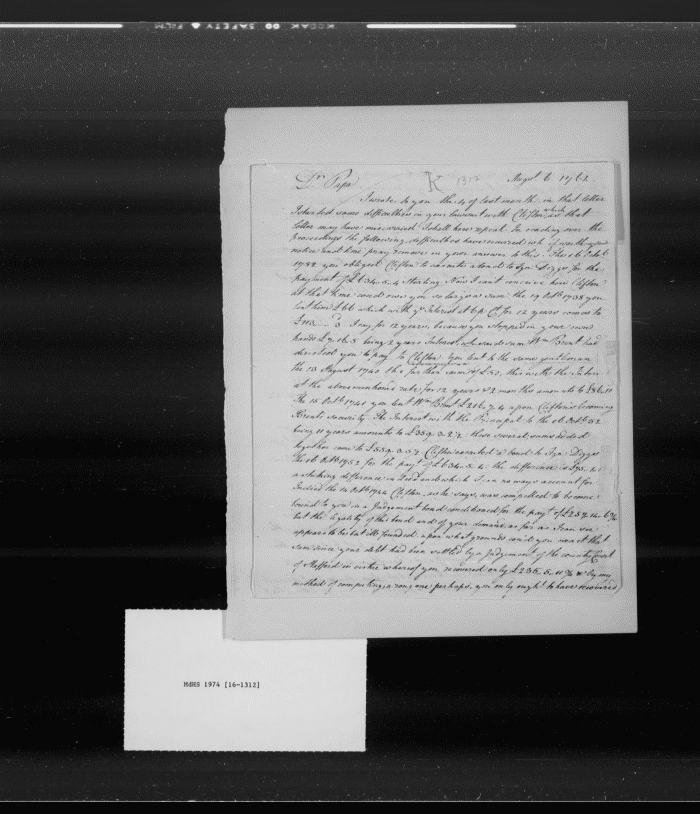 KODAK SAFETY FILM
Dr. Papa
K 1312
Augst. 6. 1762.
I wrote to you the 4 of last month in that letter
I started some difficulties in your lawsuit with Clifton, which as that
letter may have miscarried I shall here repeat. In reading over the
proceedings the following difficulties have occurred wh. if worth your
notice and time pray remove in your answer to this. The 26 Octbr.
1752 you obliged Clifton to execute a bond to Ign: Digges for the
payment of £634.5.4 Sterling. Now I can't conceive how Clifton
at that time could owe you so large a sum: the 19 Octbr. 1738 you
lent him £66 which with ye. Interest at 6 p Ct. for 12 years comes to
£113 I say for 12 years, because you stopped in your own
hands £7.16.5 being 2 years Interest, whereas Wm. Brent had
directed you to pay to Clifton. You lent to the same gentleman
the 13 August 1740 the further sum of £50, this with the Interest
at the abovementioned rate for 12 years & 2 months amounts to £86.10
The 15 Octbr. 1741 you lent Wm. Brent £216.7.4 upon Clifton's becoming
Brents security. The Interest with the Principal to the 26 Octbr. 52
being 11 years amounts to £359.3.2½ these several sums added
together come to £559. Clifton executed a bond to Ign: Digges
the 26 Octbr. 1752 for the payt. of £634.5.4. the difference is £75.
a striking difference indeed and which I can no ways account for.
Indeed the 14 Octbr. 1744 Clifton, as he says, was compelled to become
bound to you in a Judgement bond conditioned for the payt. of £259.14.
but the legality of this bond and of your demand as far as I can see
appears to be but ill founded: upon what grounds could you exact that
sum since your debt had been settled by a Judgement of the county Court
of Stafford in virtue whereof you recovered only £235.5.11¾ & by my
method of computing, a wrong one perhaps, you only ought to have recovered
MdHS 1974 [16-1312]